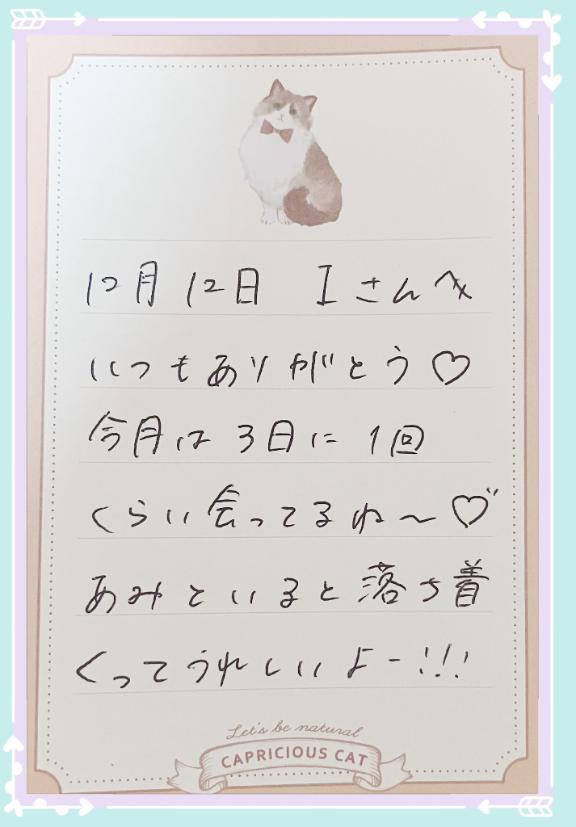 12月12日 Iさんへ
いつもありがとう♡
今月は3日に1回
くらい会ってるね〜♡
あみといると落ち着
くってうれしいよー!!!
Let's be natural
CAPRICIOUS CAT